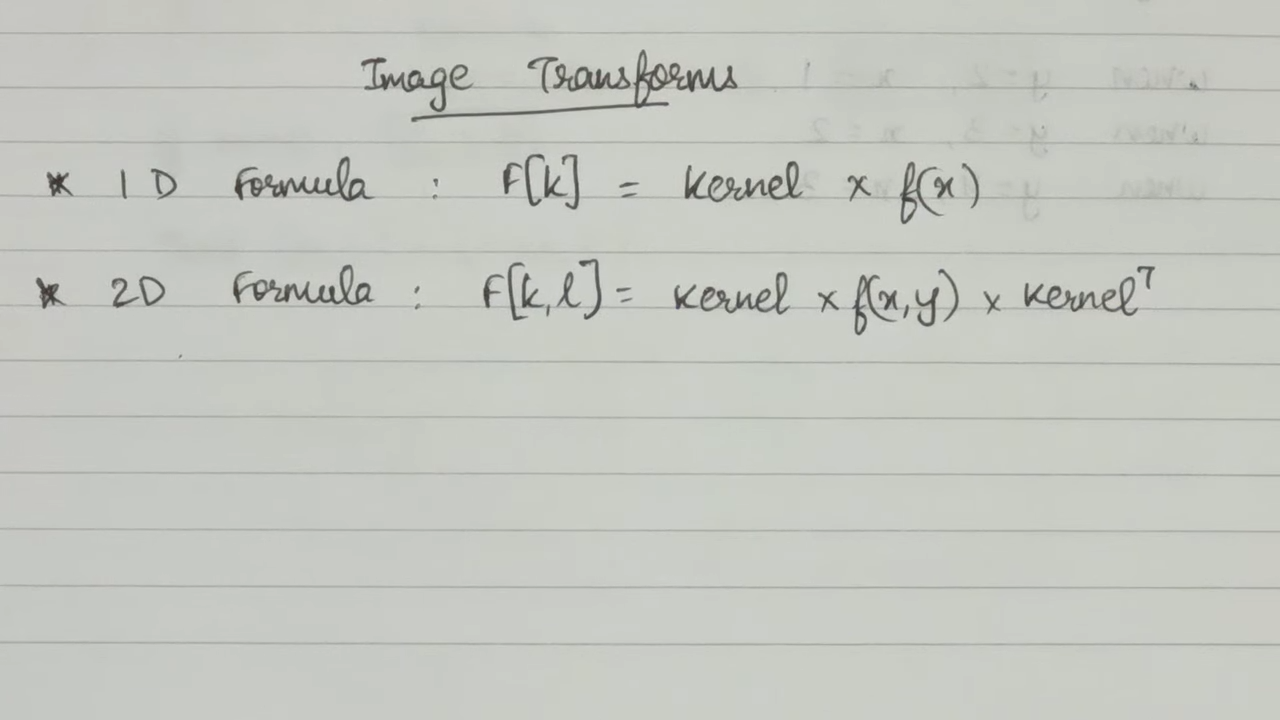 Image Transforms
* 1D Formula : F[k] = Kernel x f(x)
* 2D Formula : F[k,l] = Kernel x f(x,y) x Kernelᵀ